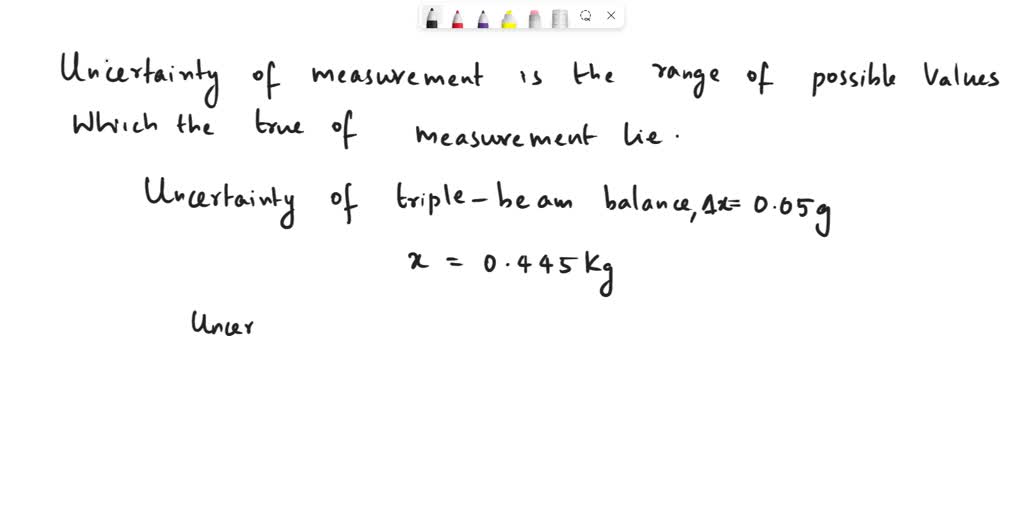 Uncertainty of measurement is the range of possible values
Which the true of measurement lie.
Uncertainty of triple-beam balance, Δx= 0.05g
x = 0.445 Kg
Uncer